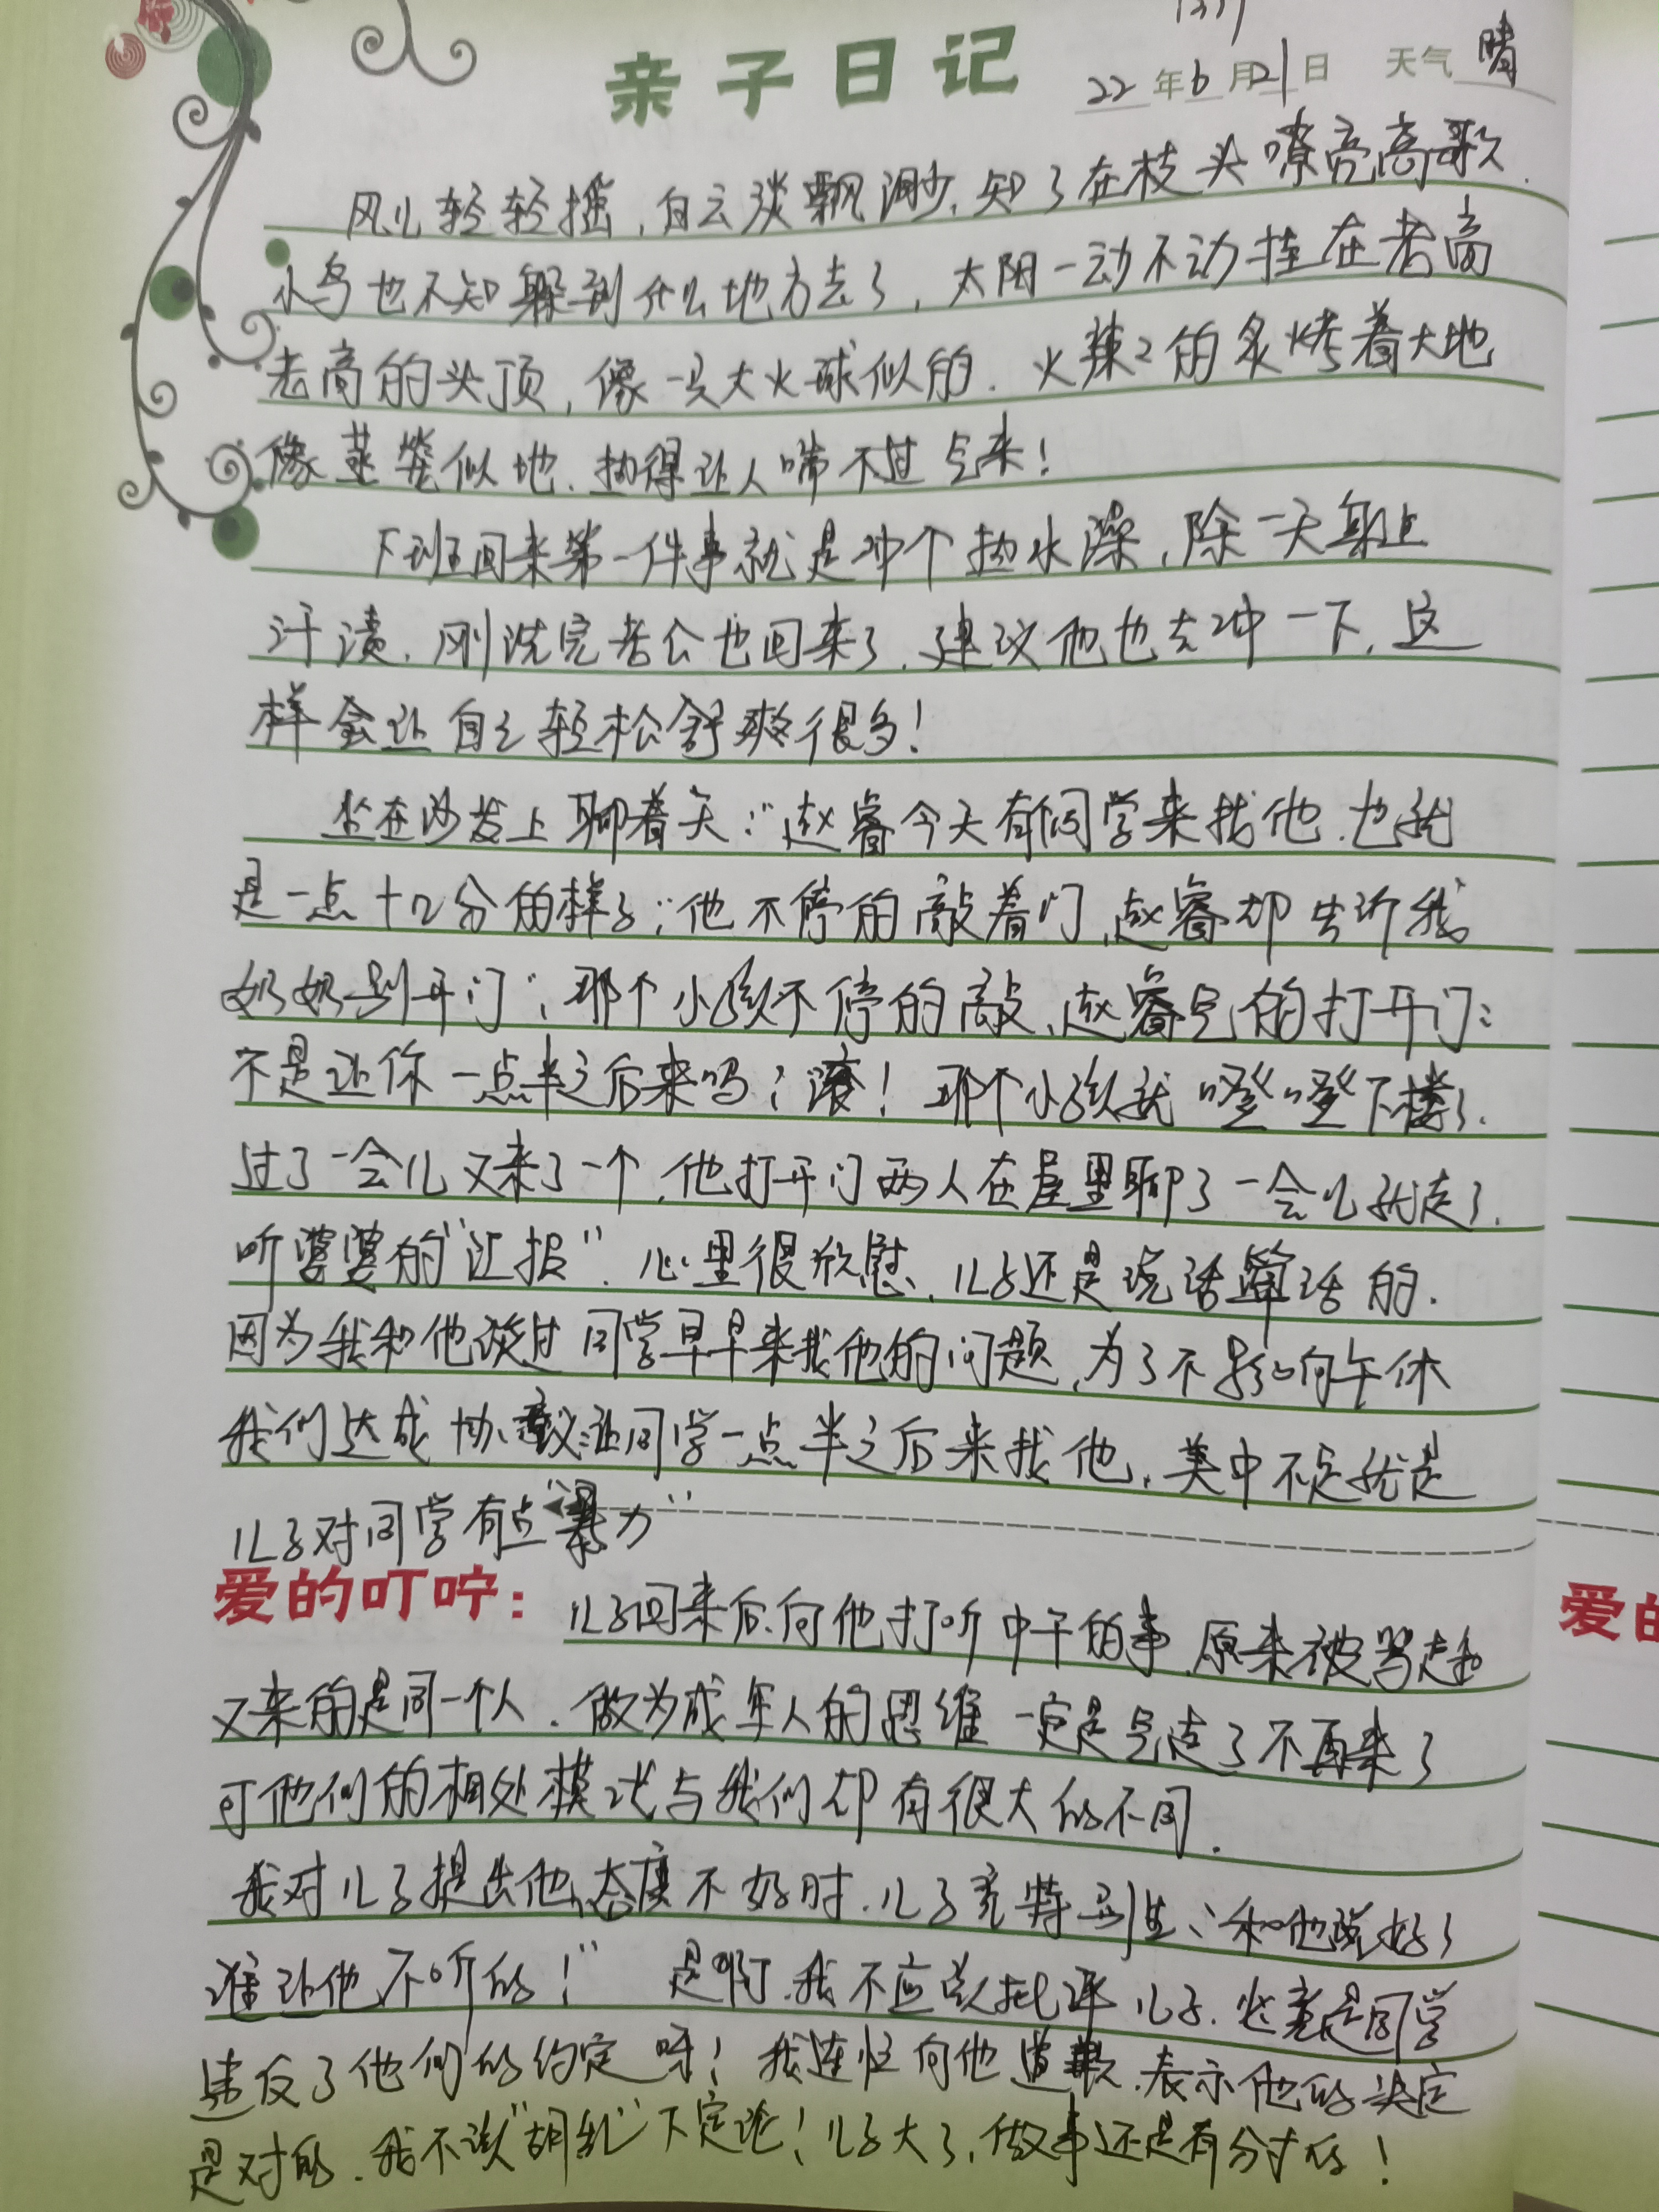 亲子日记
22年6月21日 天气 晴
风儿轻轻摇，白云淡飘渺，知了在枝头嘹亮高歌．
小鸟也不知躲到什么地方去了，太阳一动不动挂在老高
老高的头顶，像一只大火球似的．火辣2的炙烤着大地
像蒸笼似地．热得让人喘不过气来！
下班回来第一件事就是冲个热水澡，除一天身上
汗渍．刚洗完老公也回来了，建议他也去冲一下，这
样会让自己轻松舒爽很多！
坐在沙发上聊着天：“赵睿今天有同学来找他．也就
是一点十几分的样子；他不停的敲着门，赵睿却告诉我
奶奶别开门”；那个小孩不停的敲，赵睿气的打开门：
不是让你一点半之后来吗？滚！那个小孩就噔噔下楼了．
过了一会儿又来了一个，他打开门两人在屋里聊了一会儿就走了．
听婆婆的“汇报”．心里很欣慰、儿子还是说话算话的．
因为我和他谈过同学早早来找他的问题，为了不影响午休
我们达成协议：让同学一点半之后来找他，美中不足就是
儿子对同学有点“暴力”
爱的叮咛：儿子回来后向他打听中午的事，原来被骂走和
又来的是同一个人．做为成年人的思维一定是气走了不再来了
可他们的相处模式与我们却有很大的不同．
我对儿子提出他态度不好时．儿子竟特别生：和他说好了
谁让他不听的！” 是啊，我不应该批评儿子．毕竟是同学
违反了他们的约定呀！我连忙向他道歉．表示他的决定
是对的．我不该“胡乱”下定论！儿子大了，做事还是有分寸的！
爱的